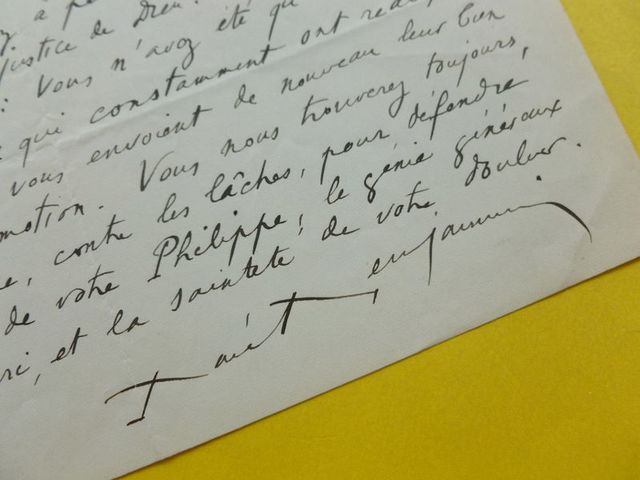 à pe
justice de Dieu.
Vous n'avez été qu
qui constamment ont red
vous envoient de nouveau leur bien
motion. Vous nous trouverez toujours,
e, contre les lâches, pour défendre,
de votre Philippe, le génie généreux
ri, et la sainteté de votre douleur.